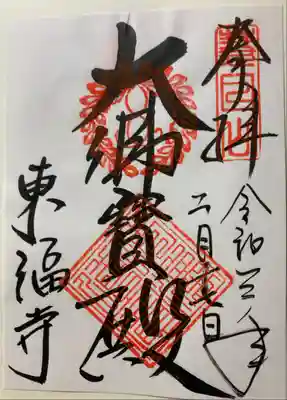 奉拝
令和三年
二月 日
大佛寶殿
東福寺